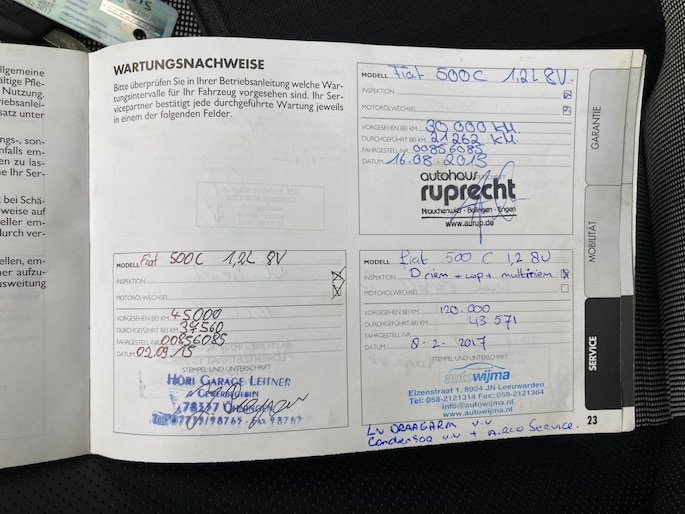 llgemeine
ältige Pfle-
Nutzung.
riebsanlei-
satz unter
ngs-, son-
nfalls em-
en zu las-
ne Ihr Ser-
t bei Schä-
weise auf
eller em-
durch ver-
ellen, em-
ner aufzu-
usweitung
WARTUNGSNACHWEISE
Bitte überprüfen Sie in Ihrer Betriebsanleitung welche War-
tungsintervalle für Ihr Fahrzeug vorgesehen sind. Ihr Ser-
vicepartner bestätigt jede durchgeführte Wartung jeweils
in einem der folgenden Felder.
MODELL Fiat 500C 1,2L 8V.
INSPEKTION
MOTORÖLWECHSEL
VORGESEHEN BEI KM 30 000 KM.
DURCHGEFÜHRT BEI KM 21262 KM.
FAHRGESTELL-NR. 00856085
DATUM 16.08-2013
autohaus
ruprecht
Krauchenwies - Balingen - Engen
www.aurup.de
MODELL Fiat 500C 1,2L 8V
INSPEKTION
MOTORÖLWECHSEL
VORGESEHEN BEI KM 45000
DURCHGEFÜHRT BEI KM 37560
FAHRGESTELL-NR. 00856085
DATUM 02.09.15
STEMPEL UND UNTERSCHRIFT
HÖRI GARAGE LEITNER
GEWERBEGEBIET
78337
07735/98765 Fax 98763
MODELL Fiat 500 C 1,2 8V
INSPEKTION D riem + wp + multiriem
MOTORÖLWECHSEL
VORGESEHEN BEI KM 120.000
DURCHGEFÜHRT BEI KM 43.571
FAHRGESTELL-NR.
DATUM 8-2-2017
STEMPEL UND UNTERSCHRIFT
autowijma
Elzenstraat 1, 8924 JN Leeuwarden
Tel: 058-2121314 Fax: 058-2121364
info@autowijma.nl
www.autowijma.nl
LV DRAAGARM v.v.
Condensor v.v + AIRCO Service.
23
GARANTIE
MOBILITÄT
SERVICE